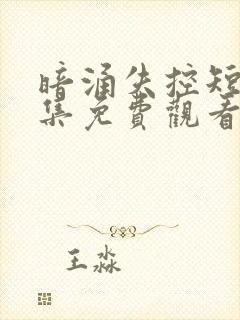 暗涌失控短
集免費觀看
王淼